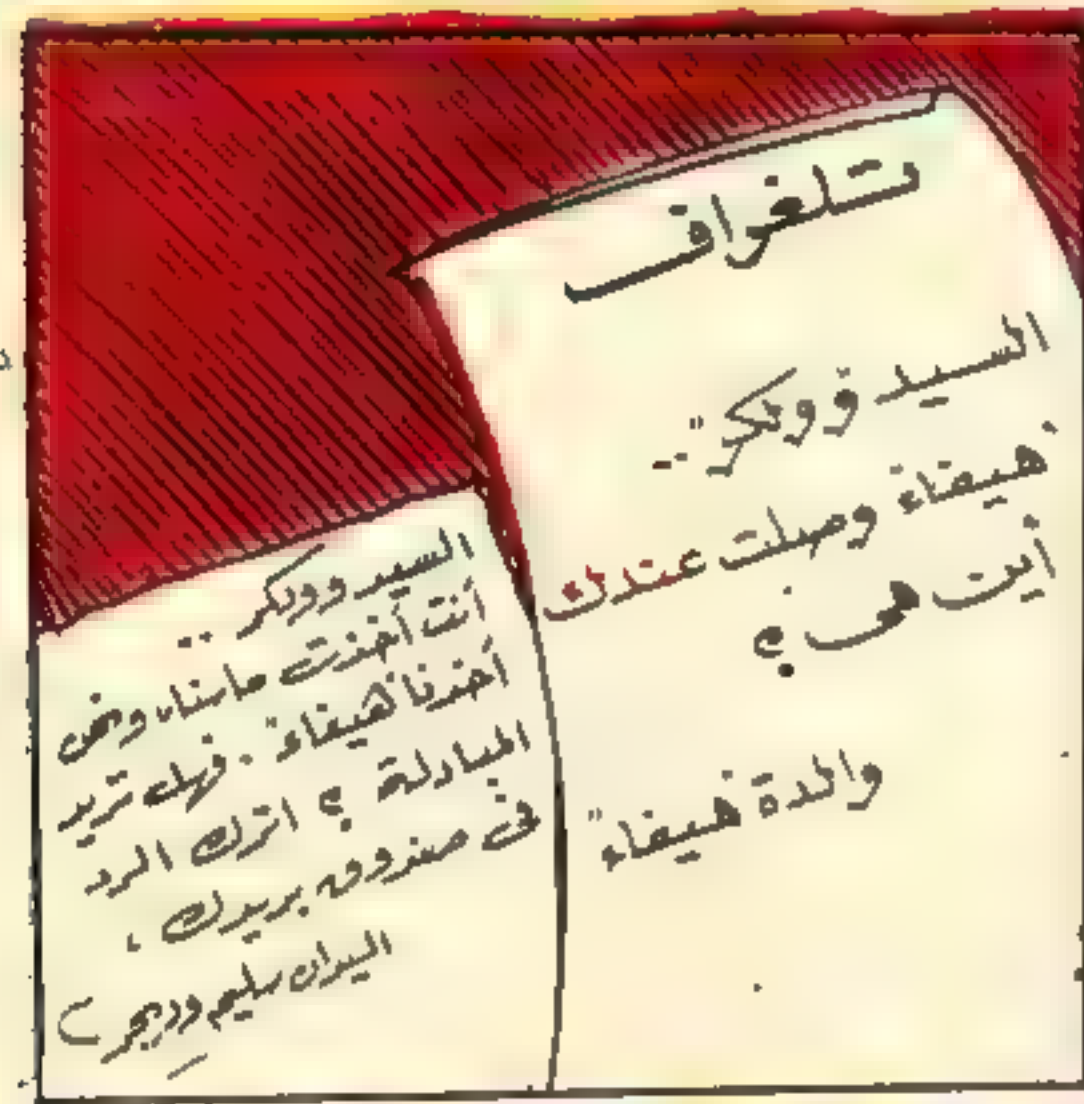 تلغراف
السيد "وولكر"..
"هيفاء" وصلت عندك
أين هى ؟
والدة "هيفاء"
السيد وولكر ..
أنت أخذت ماسنا، ونحن
أخذنا "هيفاء". فهل تريد
المبادلة ؟ اترك الرد
فى صندوق بريدك ،
سليم